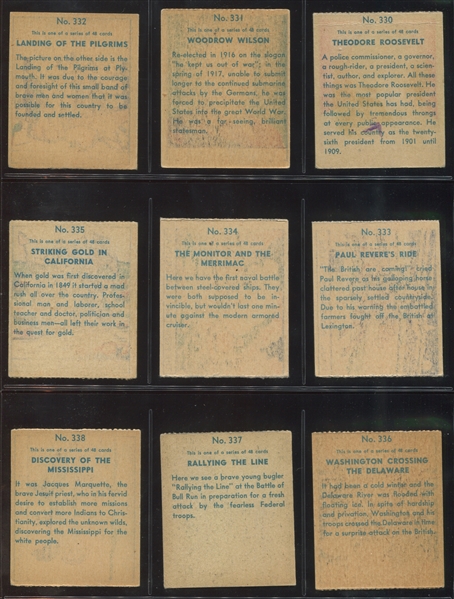 No. 332
This is one of a series of 48 cards
LANDING OF THE PILGRIMS
The picture on the other side is the
Landing of the Pilgrims at Ply-
mouth. It was due to the courage
and foresight of this small band of
brave men and women that it was
possible for this country to be
founded and settled.
No. 331
This is one of a series of 48 cards
WOODROW WILSON
Re-elected in 1916 on the slogan
"he kept us out of war"; in the
spring of 1917, unable to submit
longer to the continued submarine
attacks by the Germans, he was
forced to precipitate the United
States into the great World War.
He was a far-seeing, brilliant
statesman.
No. 330
This is one of a series of 48 cards
THEODORE ROOSEVELT
A police commissioner, a governor,
a rough-rider, a president, a scien-
tist, author, and explorer. All these
things was Theodore Roosevelt. He
was the most popular president
the United States has had, being
followed by tremendous throngs
at every public appearance. He
served his country as the twenty-
sixth president from 1901 until
1909.
No. 335
This is one of a series of 48 cards
STRIKING GOLD IN
CALIFORNIA
When gold was first discovered in
California in 1849 it started a mad
rush all over the country. Profes-
sional man and laborer, school
teacher and doctor, politician and
business men—all left their work in
the quest for gold.
No. 334
This is one of a series of 48 cards
THE MONITOR AND THE
MERRIMAC
Here we have the first naval battle
between steel-covered ships. They
were both supposed to be in-
vincible, but wouldn't last one min-
ute against the modern armored
cruiser.
No. 333
This is one of a series of 48 cards
PAUL REVERE'S RIDE
"The British are coming!" cried
Paul Revere as his galloping horse
clattered past house after house in
the sparsely settled countryside.
Due to his warning the embattled
farmers fought off the British at
Lexington.
No. 338
This is one of a series of 48 cards
DISCOVERY OF THE
MISSISSIPPI
It was Jacques Marquette, the
brave Jesuit priest, who in his fervid
desire to establish more missions
and convert more Indians to Chris-
tianity, explored the unknown wilds,
discovering the Mississippi for the
white people.
No. 337
This is one of a series of 48 cards
RALLYING THE LINE
Here we see a brave young bugler
"Rallying the Line" at the Battle of
Bull Run in preparation for a fresh
attack by the fearless Federal
troops.
No. 336
This is one of a series of 48 cards
WASHINGTON CROSSING
THE DELAWARE
It had been a cold winter and the
Delaware River was flooded with
floating ice. In spite of hardship
and privation, Washington and his
troops crossed the Delaware in time
for a surprise attack on the British.